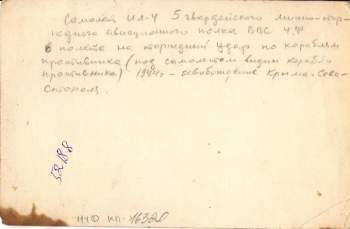 Самолет Ил-4 5 гвардейского минно-тор-
педного авиационного полка ВВС ЧФ
в полете на торпедный удар по кораблям
противника (под самолетом видны корабли
противника) 1944г. - освобождение Крыма. Сева-
стополь.
5288
НЧФ КП-16320